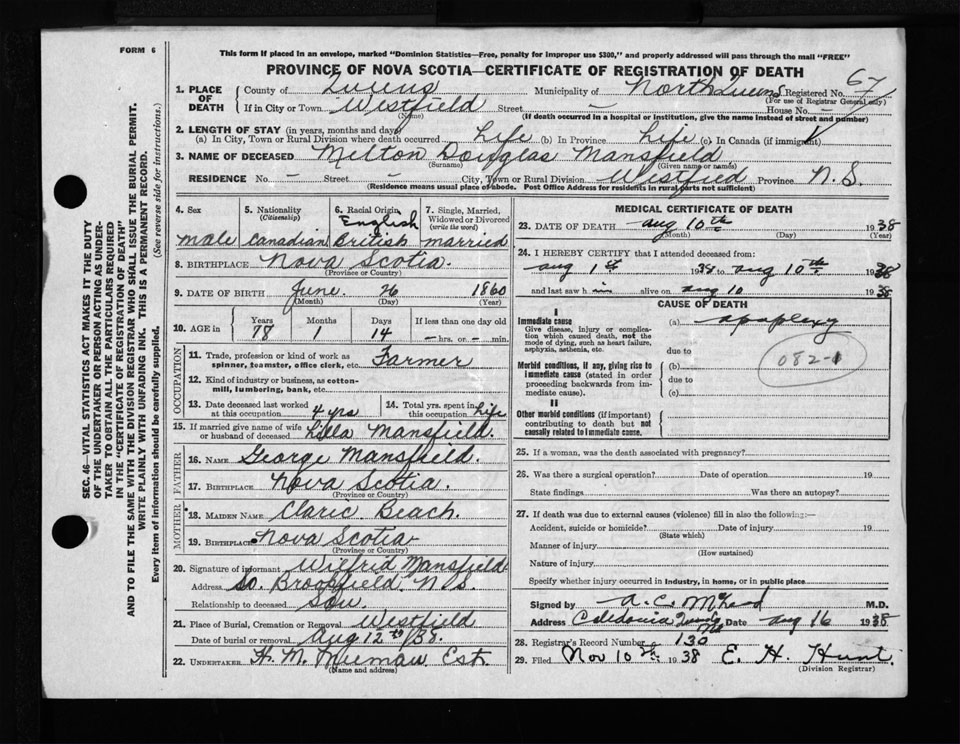 FORM 6
This form if placed in an envelope, marked "Dominion Statistics—Free, penalty for improper use $300," and properly addressed will pass through the mail "FREE"
PROVINCE OF NOVA SCOTIA—CERTIFICATE OF REGISTRATION OF DEATH
1. PLACE OF DEATH
County of Queens Municipality of North Queens Registered No. 67
(For use of Registrar General only)
If in City or Town Westfield Street — House No. —
(Name) (If death occurred in a hospital or institution, give the name instead of street and number)
2. LENGTH OF STAY (in years, months and days)
(a) In City, Town or Rural Division where death occurred Life (b) In Province Life (c) In Canada (if immigrant)
3. NAME OF DECEASED Milton Douglas Mansfield
(Surname) (Given name or names)
RESIDENCE No. — Street — City, Town or Rural Division Westfied Province N.S.
(Residence means usual place of abode. Post Office Address for residents in rural parts not sufficient)
4. Sex
male
5. Nationality
(Citizenship)
Canadian
6. Racial Origin
English
British
7. Single, Married, Widowed or Divorced
(write the word)
married
8. BIRTHPLACE Nova Scotia.
(Province or Country)
9. DATE OF BIRTH June. 26 1860
(Month) (Day) (Year)
10. AGE in
Years Months Days If less than one day old
78 1 14 — hrs. or — min.
OCCUPATION
11. Trade, profession or kind of work as spinner, teamster, office clerk, etc. Farmer
12. Kind of industry or business, as cotton-mill, lumbering, bank, etc.
13. Date deceased last worked at this occupation 4 yrs
14. Total yrs. spent in this occupation Life
15. If married give name of wife or husband of deceased Lilla Mansfield.
FATHER
16. NAME George Mansfield.
17. BIRTHPLACE Nova Scotia.
(Province or Country)
MOTHER
18. MAIDEN NAME Beach.
19. BIRTHPLACE Nova Scotia
(Province or Country)
20. Signature of informant Wilfrid Mansfield
Address So. Brookfield. N.S.
Relationship to deceased Son.
21. Place of Burial, Cremation or Removal Westfield
Date of burial or removal Aug 12th/38.
22. UNDERTAKER H. M. Est.
(Name and address)
MEDICAL CERTIFICATE OF DEATH
23. DATE OF DEATH Aug 10th 1938
(Month) (Day) (Year)
24. I HEREBY CERTIFY that I attended deceased from:
Aug 1st 1938 to Aug 10th. 1938
and last saw h im alive on Aug 10 1938
CAUSE OF DEATH
I
Immediate cause
Give disease, injury or complication which caused death, not the mode of dying, such as heart failure, asphyxia, asthenia, etc.
(a) apoplexy
082-1
due to
Morbid conditions, if any, giving rise to immediate cause (stated in order proceeding backwards from immediate cause).
(b)
due to
(c)
II
Other morbid conditions (if important) contributing to death but not causally related to immediate cause.
25. If a woman, was the death associated with pregnancy?
26. Was there a surgical operation? Date of operation 19
State findings Was there an autopsy?
27. If death was due to external causes (violence) fill in also the following:—
Accident, suicide or homicide? Date of injury 19
(State which)
Manner of injury
(How sustained)
Nature of injury
Specify whether injury occurred in industry, in home, or in public place
Signed by A.C. M.D.
Address Caledonia Queens NS Date Aug 16 1938
28. Registrar's Record Number 130
29. Filed Nov 10th 1938 E. H. Hunt.
(Division Registrar)
SEC. 46—VITAL STATISTICS ACT MAKES IT THE DUTY
OF THE UNDERTAKER OR PERSON ACTING AS UNDER-
TAKER TO OBTAIN ALL THE PARTICULARS REQUIRED
IN THE "CERTIFICATE OF REGISTRATION OF DEATH"
AND TO FILE THE SAME WITH THE DIVISION REGISTRAR WHO SHALL ISSUE THE BURIAL PERMIT.
WRITE PLAINLY WITH UNFADING INK. THIS IS A PERMANENT RECORD.
Every item of information should be carefully supplied. (See reverse side for instructions.)